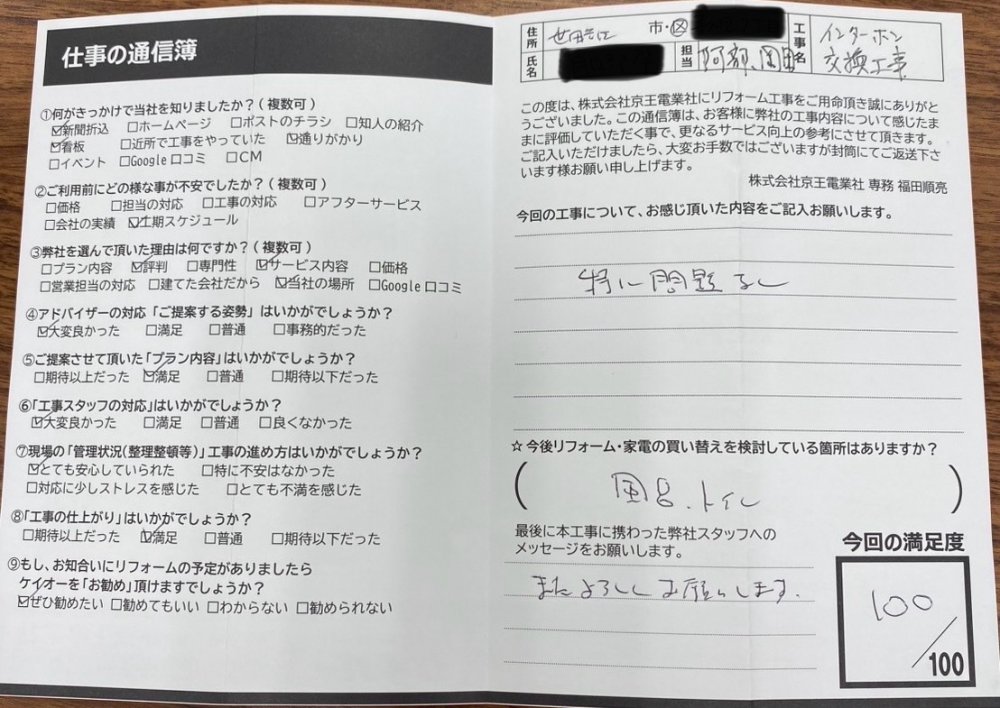 仕事の通信簿
①何がきっかけで当社を知りましたか？（複数可）
☑新聞折込 □ホームページ □ポストのチラシ □知人の紹介
☑看板 □近所で工事をやっていた ☑通りがかり
□イベント □Google口コミ □CM
②ご利用前にどの様な事が不安でしたか？（複数可）
□価格 □担当の対応 □工事の対応 □アフターサービス
□会社の実績 ☑工期スケジュール
③弊社を選んで頂いた理由は何ですか？（複数可）
□プラン内容 ☑評判 □専門性 ☑サービス内容 □価格
□営業担当の対応 □建てた会社だから ☑当社の場所 □Google口コミ
④アドバイザーの対応「ご提案する姿勢」はいかがでしょうか？
☑大変良かった □満足 □普通 □事務的だった
⑤ご提案させて頂いた「プラン内容」はいかがでしょうか？
□期待以上だった ☑満足 □普通 □期待以下だった
⑥「工事スタッフの対応」はいかがでしょうか？
☑大変良かった □満足 □普通 □良くなかった
⑦現場の「管理状況（整理整頓等）」工事の進め方はいかがでしょうか？
☑とても安心していられた □特に不安はなかった
□対応に少しストレスを感じた □とても不満を感じた
⑧「工事の仕上がり」はいかがでしょうか？
□期待以上だった ☑満足 □普通 □期待以下だった
⑨もし、お知合いにリフォームの予定がありましたら
ケイオーを「お勧め」頂けますでしょうか？
☑ぜひ勧めたい □勧めてもいい □わからない □勧められない
住所 世田谷区 市・区
氏名 担当 阿部、 工事名 インターホン
交換工事
この度は、株式会社京王電業社にリフォーム工事をご用命頂き誠にありがと
うございました。この通信簿は、お客様に弊社の工事内容について感じたま
まに評価していただく事で、更なるサービス向上の参考にさせて頂きます。
ご記入いただけましたら、大変お手数ではございますが封筒にてご返送下さ
います様お願い申し上げます。
株式会社京王電業社 専務 福田順亮
今回の工事について、お感じ頂いた内容をご記入お願いします。
特に問題なし
☆今後リフォーム・家電の買い替えを検討している箇所はありますか？
（風呂．トイレ）
最後に本工事に携わった弊社スタッフへの
メッセージをお願いします。
またよろしくお願いします．
今回の満足度
100／100